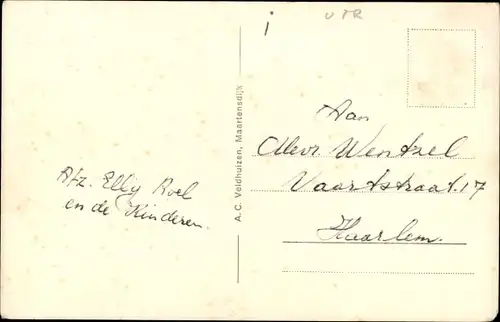 i
UTR
Afz. Elly Roel
en de Kinderen.
A. C. Veldhuizen, Maartensdijk
Aan
Mevr. Wentzel
Vaartstraat. 17
Haarlem.